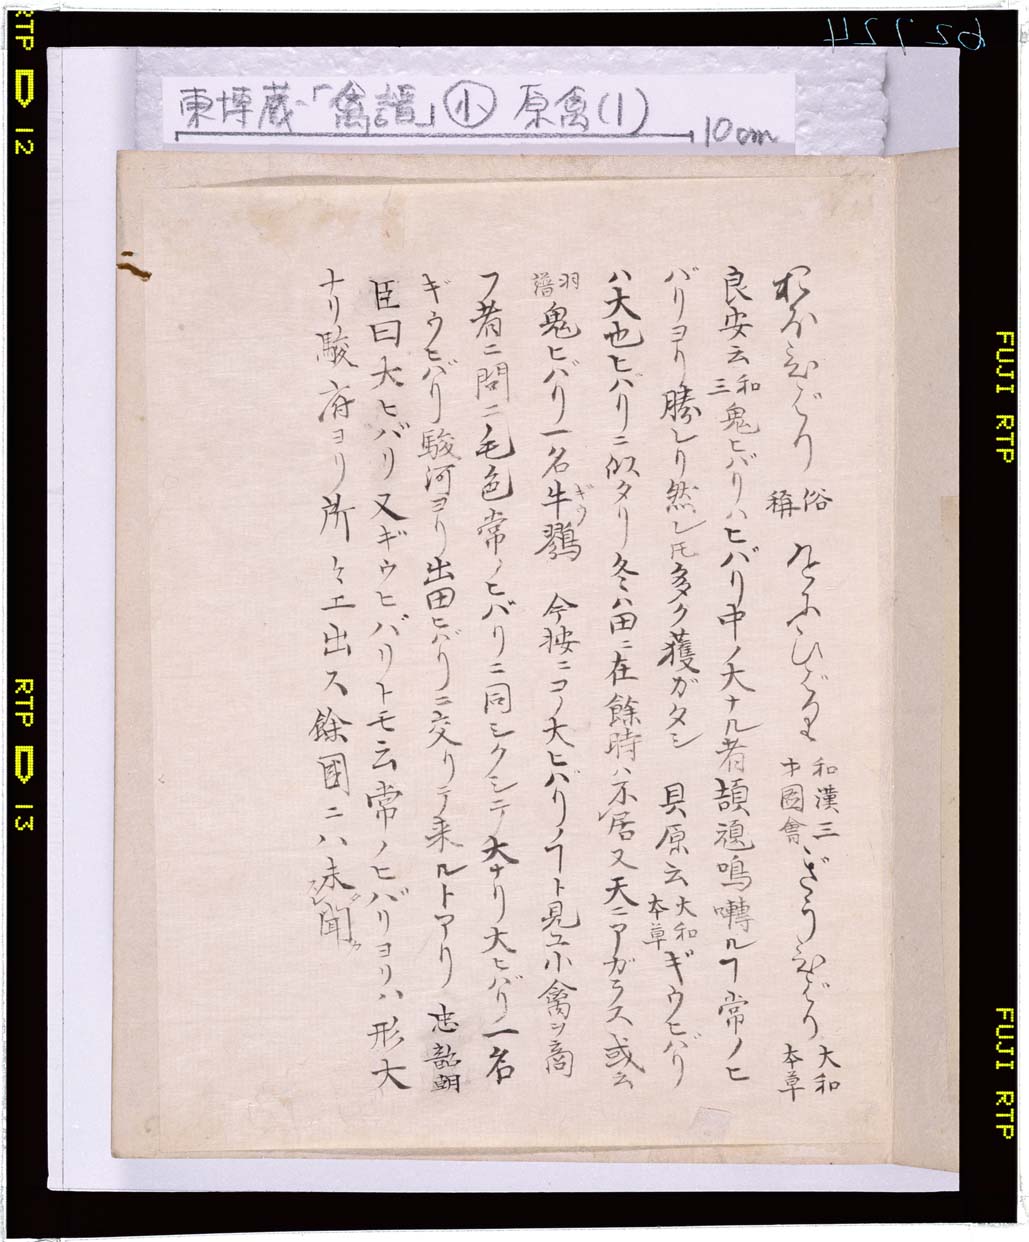 東博蔵「禽譜」小 原禽(1)
10cm
おほひばり 俗稱 をにひばり 和漢三才圖會 ぎうひばり 大和本草
良安云 和三 鬼ヒバリハヒバリ中ノ大ナル者 頭 鳴囀ルヿ常ノヒ
バリヨリ勝レリ然レ𪜈多ク獲ガタシ 貝原云 大和本草 ギウヒバリ
ハ大也ヒバリニ似タリ冬ハ田ニ在餘時ハ不居又天ニアガラス或云
羽譜 鬼ヒバリ一名牛鷚 ギウ 今按ニコノ大ヒバリノヿト見ユ小禽ヲ商
フ者ニ問ニ毛色常ノヒバリニ同シクシテ大ナリ大ヒバリ一名
ギウヒバリ駿河ヨリ出田ヒバリニ交リテ来ルトアリ 忠韶朝
臣曰大ヒバリ又ギウヒバリトモ云常ノヒバリヨリハ形大
ナリ駿府ヨリ所々エ出ス餘國ニハ未聞
RTP 12
RTP 13
FUJI RTP
FUJI RTP
62724